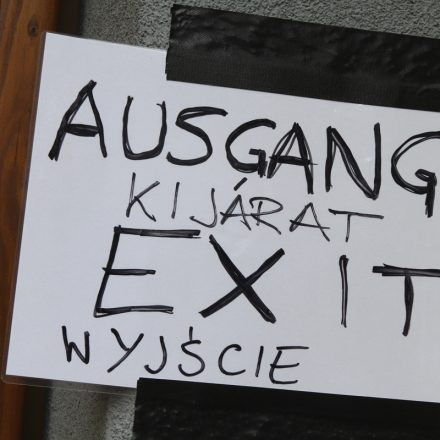 AUSGANG
KIJÁRAT
EXIT
WYJŚCIE